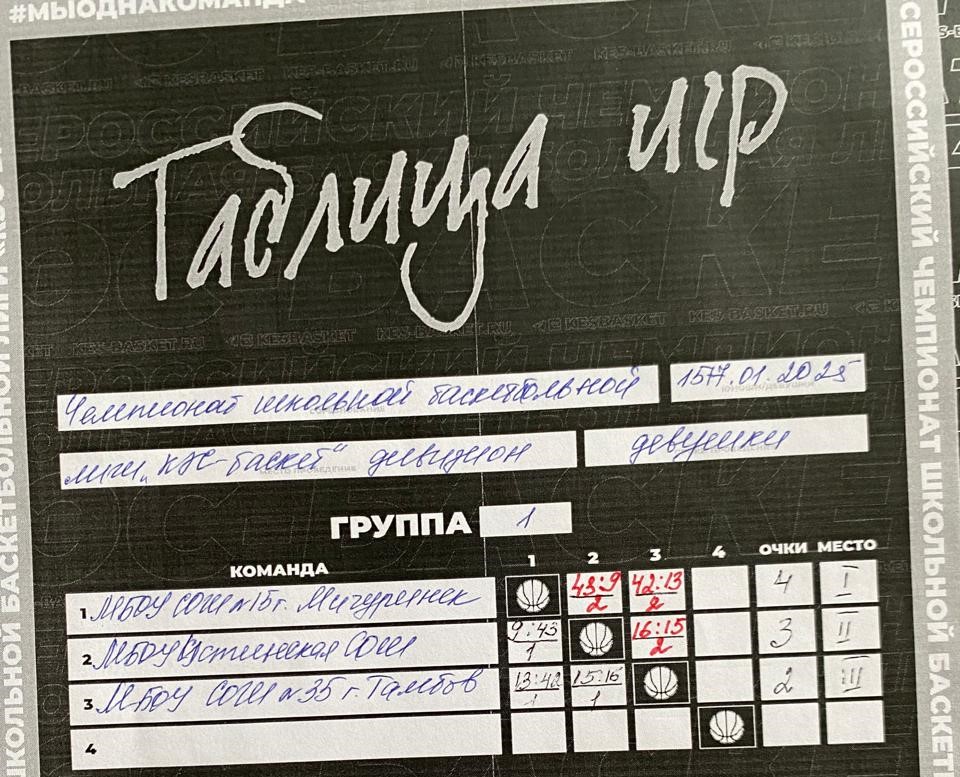 #МЫОДНАКОМАНДА
Таблица игр
Чемпионат школьной баскетбольной
15-17.01.2025
лиги „КЭС-баскет" дивизион
девушки
ГРУППА 1
КОМАНДА 1 2 3 4 ОЧКИ МЕСТО
1 МБОУ СОШ №15 г. Мичуринск 43:9 2 42:13 2 4 I
2 МБОУ Устьинская СОШ 9:43 1 16:15 2 3 II
3 МБОУ СОШ №35 г. Тамбов 13:42 1 15:16 1 2 III
4